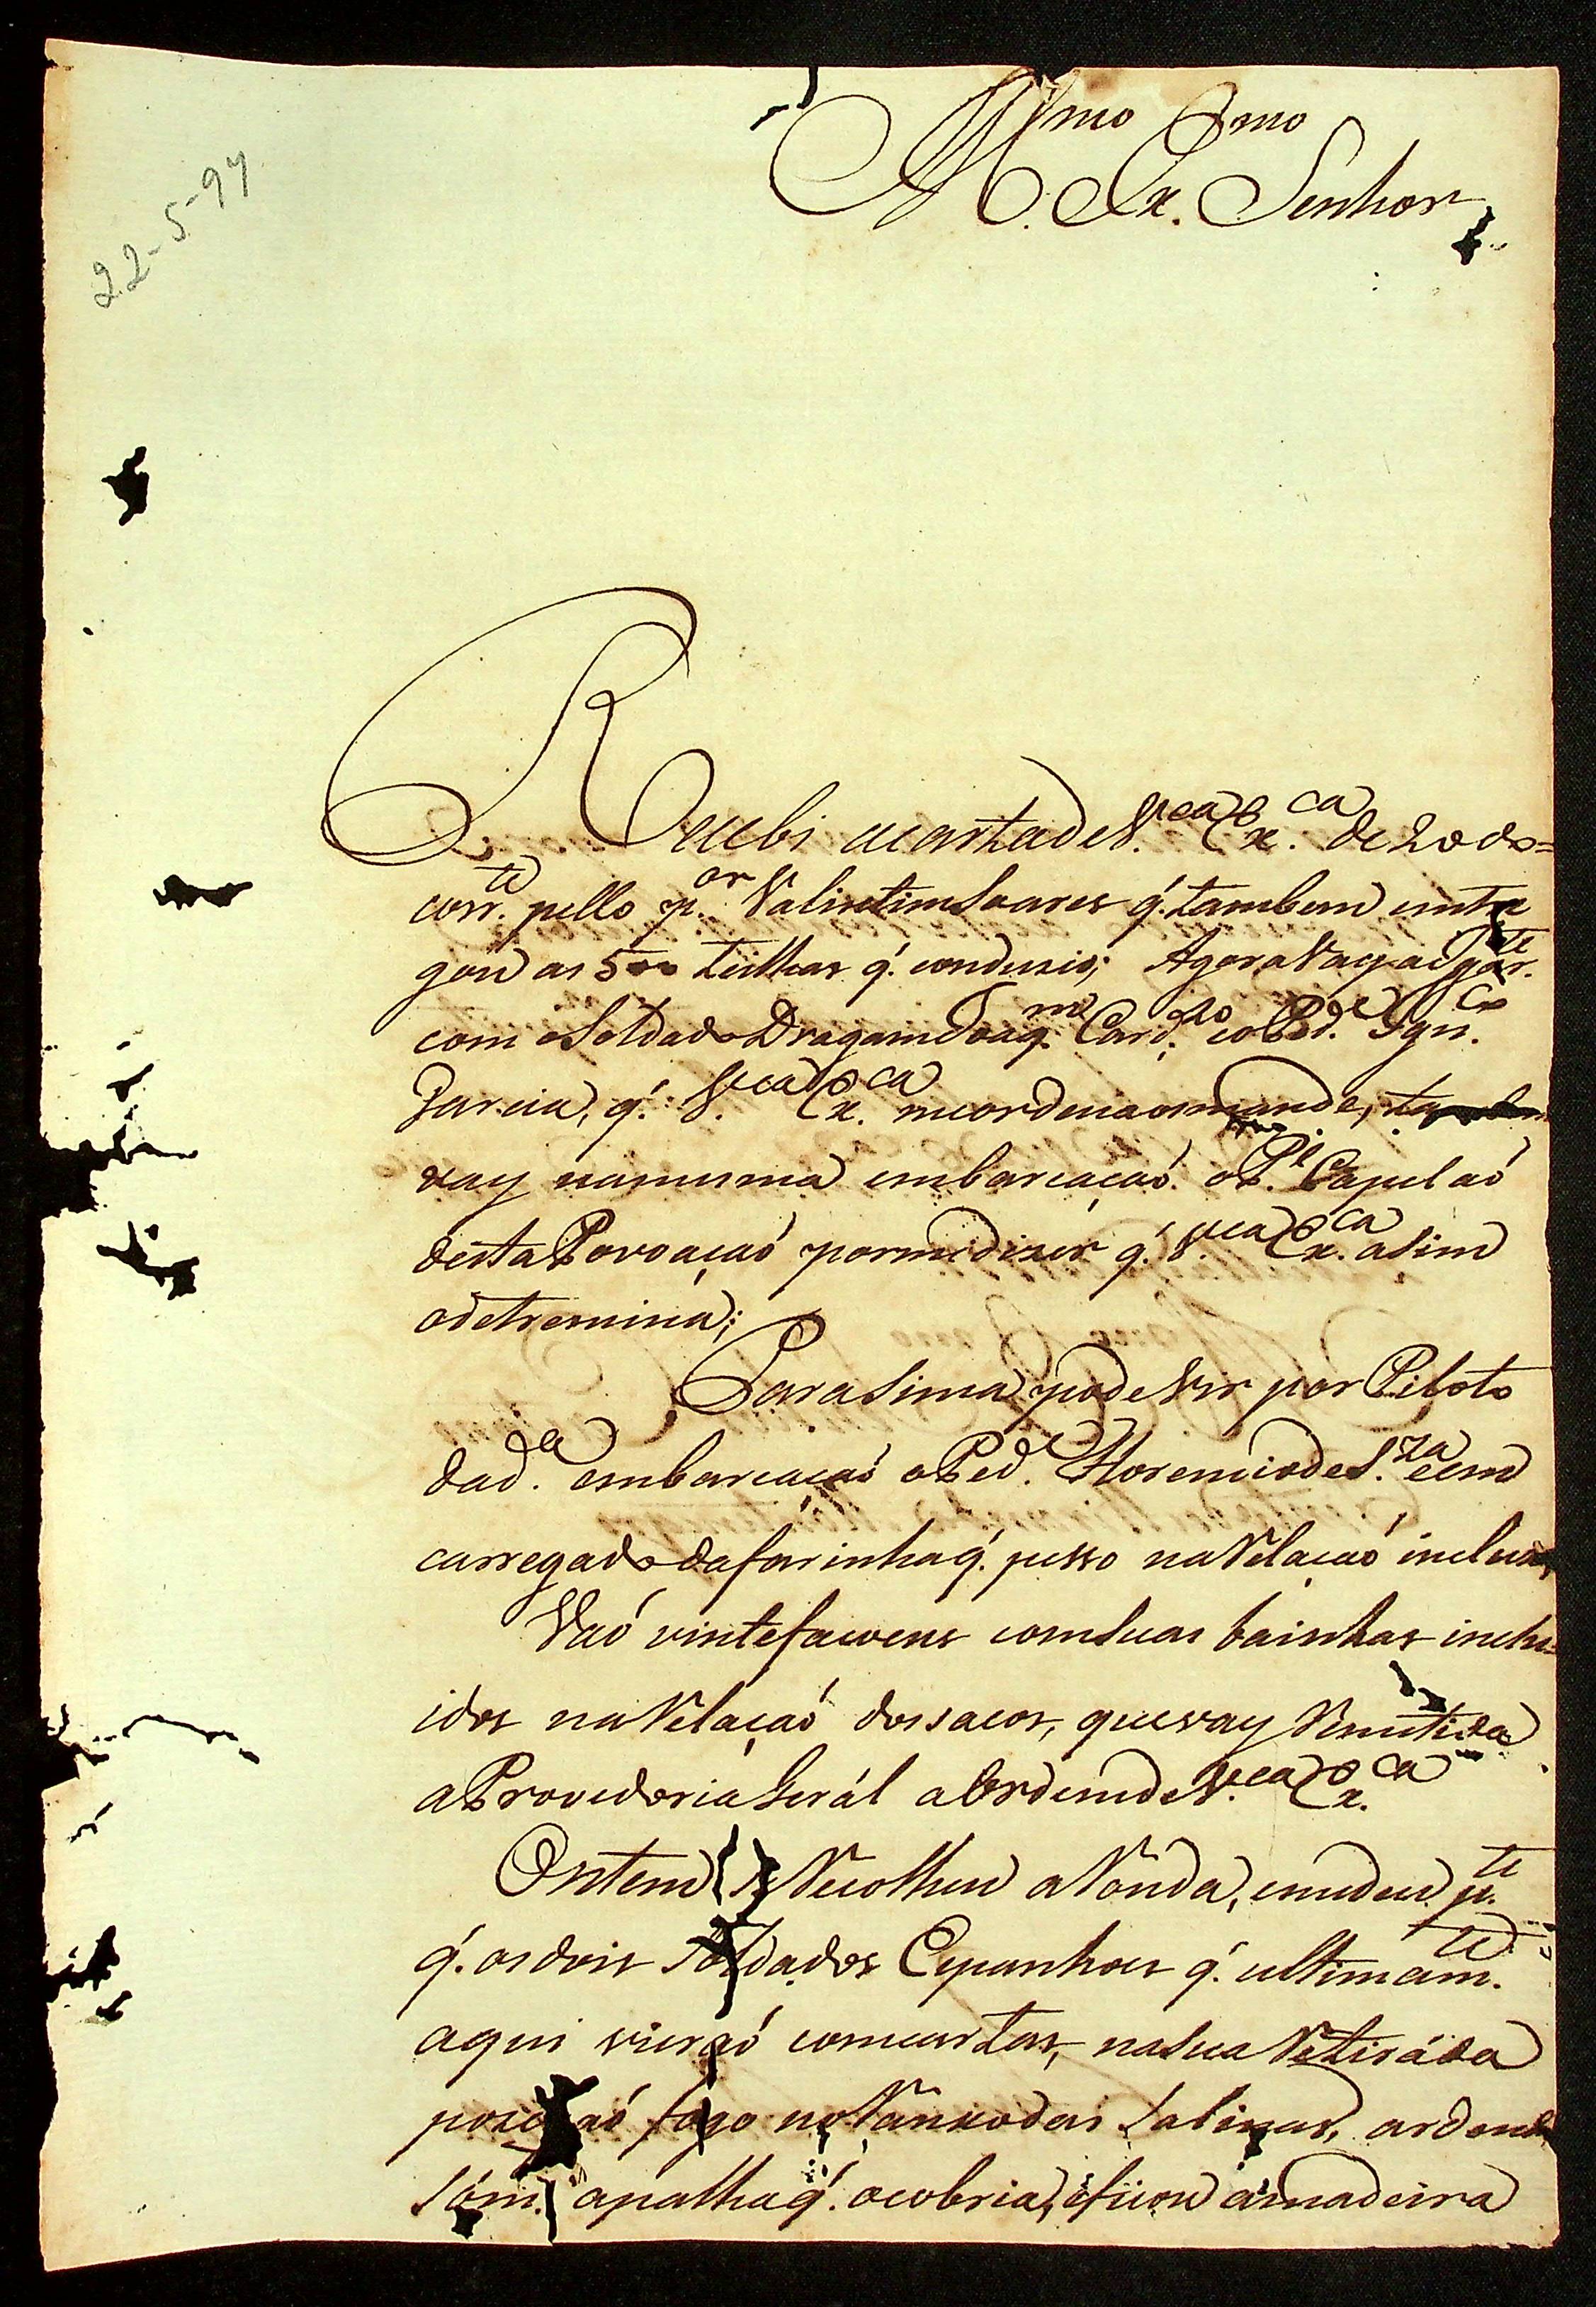 22-5-97
Illmo Exmo
Senhor
Recebi a carta de V.ca Ex.ca de 20 do=
corr.te pello p.or Valintim Soares q́. tambem entre
gou as 500 teilhas q́. condusio; Agora Vay
com o Soldado Dragam Joaq.m Card.zo e o Ign.co
Garcia, q́. V.ca Ex.ca me ordena os mande,
vay na mesma embarcaçaó. o P.e Capelaó
desta Povoaçaó por me dizer q́. V.ca Ex.ca asim
o detremina;
Para sima pode Vir por Piloto
da d.a embarcaçaó o Florencio de S.za e em
carregado da farinha q́. pesso na Relaçaó incluza,
Vaó vinte facoens com suas bainhas inclu=
idos na Relaçaó dos sacos, que vay Remetida
a Provedoria Geral a Ordem de V.ca Ex.ca
Ontem se Recolheu a Ronda, e me deu p.te
q́. os dois Soldados Espanhoes q́. ultimam.te
aqui vieraó com cartas, na sua Retiráda
pozeraó fogo no Ranxo das Salinas, ardendo
sóm. a palha q́. o cobria, e ficou a madeira